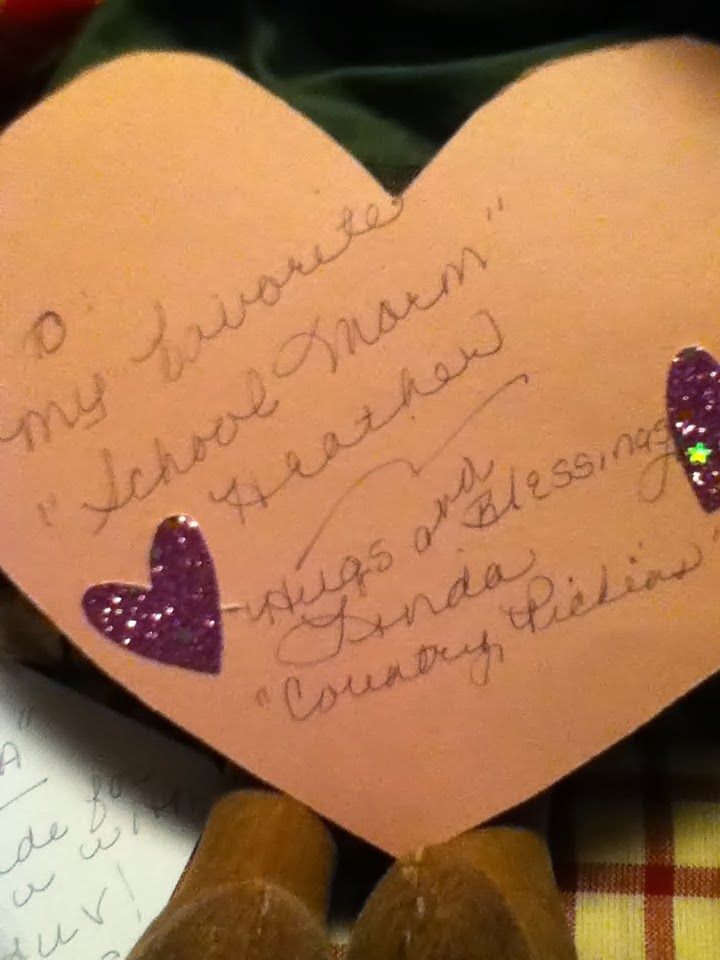 O
my favorite
"School Marm"
Heather
Hugs and Blessings
Linda
"Country Pickins"
A"
de for
a with
luv!